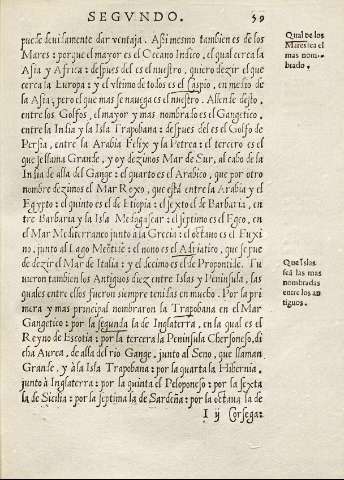 SEGVNDO. 59
puede deuidamente dar ventaja. Assi mesmo tambien es de los
Mares: porque el mayor es el Oceano Indico, el qual cerca la
Asia y Africa: despues del es el nuestro, quiero dezir el que
cerca la Europa: y el vltimo de todos es el Caspio, en medio de
la Asia; pero el que mas se nauega es el nuestro. Allende desto,
entre los Golfos, el mayor y mas nombrado es el Gangetico,
entre la India y la Isla Trapobana: despues del es el Golfo de
Persia, entre la Arabia Felix y la Petrea: el tercero es el
que se llama Grande, y oy dezimos Mar de Sur, al cabo de la
India de alla del Gange: el quarto es el Arabico, que por otro
nombre dezimos el Mar Roxo, que està entre la Arabia y el
Egypto: el quinto es el de Etiopia: el sexto el de Barbaria, en
tre Barbaria y la Isla Medagascar: el septimo es el Egeo, en
el Mar Mediterraneo junto a la Grecia: el octauo es el Fuxi
no, junto al Lago Meotide: el nono es el Adriatico, que se pue
de dezir el Mar de Italia: y el decimo es el de Propontide. Tu
uieron tambien los Antiguos diez entre Islas y Peninsula, las
quales entre ellos fueron siempre tenidas en mucho. Por la pri
mera y mas principal nombraron la Trapobana en el Mar
Gangetico: por la segunda la de Inglaterra, en la qual es el
Reyno de Escotia: por la tercera la Peninsula Chersoneso, di
cha Aurea, de alla del rio Gange, junto al Seno, que llaman
Grande, y à la Isla Trapobana: por la quarta la Hibernia,
junto à Inglaterra: por la quinta el Peloponeso: por la sexta
la de Sicilia: por la septima la de Sardeña: por la octaua la de
I ij Corsega:
Qual de los
Mares sea el
mas nom-
brado.
Que Islas
seã las mas
nombradas
entre los an
tiguos.